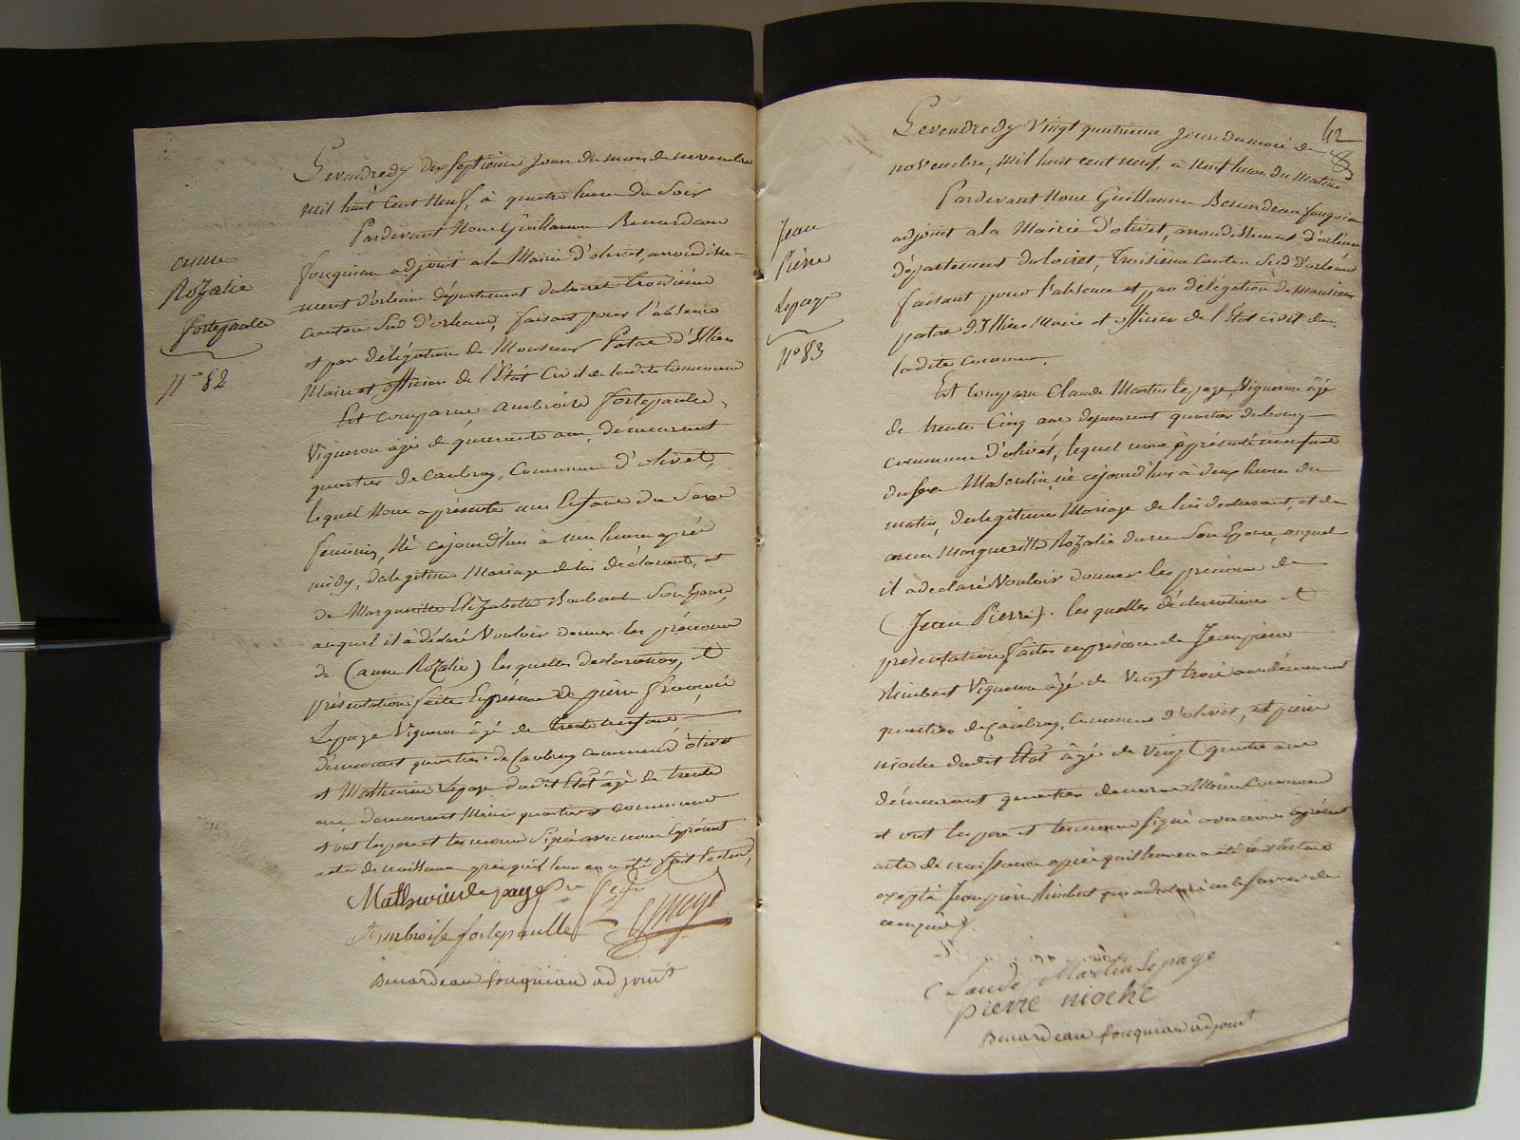 Le vendredy dix septieme jour du mois de novembre
mil huit cent neuf, à quatre heure du soir
Pardevant Nous Guillaume Benardeau
fouquiau adjoint a la Mairie d'olivet, arrondisse-
ment d'orleans département du loiret troisieme
canton Sud d'orleans, faisant pour l'absence
et par délégation de Monsieur Patas d'Illiers
Maire et officier de l'État Civil de ladite Commune
Est comparu ambroise fortepaulle,
Vigneron âgé de quarente ans, demeurant
quartier de Caubray, Commune d'olivet,
lequel Nous a présenté une Enfant du Sexe
féminin, Né cejourd'hui à une heure après
midy, de legitime Mariage de lui déclarant, et
de Margueritte Elizabeth Son Epouse,
auquel il à déclaré Vouloir donner les prénoms
de (anne Rozalie) les quelles declaration, et
présentation faite En présence de pierre françois
Lepage Vigneron âgé de trente neuf ans
démeurant quartier de Caubray commune d'olivet
et Mathurin Lepage dudit Etat âgé de trente
ans, demeurant Même quartier et commune
et ont les pere et temoins Signé avec nous le présent
acte de naissance après qu'il leur en a été fait lecture,
Mathurin le page
Ambroise fortepaulle
Benardeau fouquiau adjoint
anne
Rozalie
fortepaulle
N° 82
42
Le vendredy Vingt quatrieme jour du mois de
novembre, mil huit cent neuf, à neuf heure du matin
Pardevant Nous Guillaume Benardeau fouquiau
adjoint a la Mairie d'olivet, arrondissement d'orleans
département du loiret, troisieme Canton Sud d'orleans
faisant pour l'absence et par délégation de Monsieur
patas d'Illiers Maire et officier de l'Etat civil de
ladite commune.
Est Comparu Claude Martin Lepage, Vigneron âgé
de trente Cinq ans demeurant quartier du bourg
commune d'olivet, lequel nous à présenté un enfant
du sexe Masculin, né cejourd'hui à deux heures du
matin, de legitime Mariage de lui declarant, et de
Margueritte Rozalie Son Epouse, auquel
il à declaré Vouloir donner les prénoms de
(Jean Pierre). les quelles déclarations et
présentation faites en présence de Jean pierre
Rimbert Vigneron âgé de Vingt trois ans démeurant
quartier de Caubray, Commune d'olivet, et pierre
nioche dudit Etat âgé de Vingt quatre ans
démeurant quartier Même Commune
et ont les pere et temoins signé avec nous le présent
acte de naissance après qu'il leur en a été fait lecture
excepté Jean pierre Rimbert qui a declaré ne le savoir de
ce enquis.
Claude Martin Lepage
pierre nioche
Benardeau fouquiau adjoint
Jean
Pierre
Lepage
N° 83